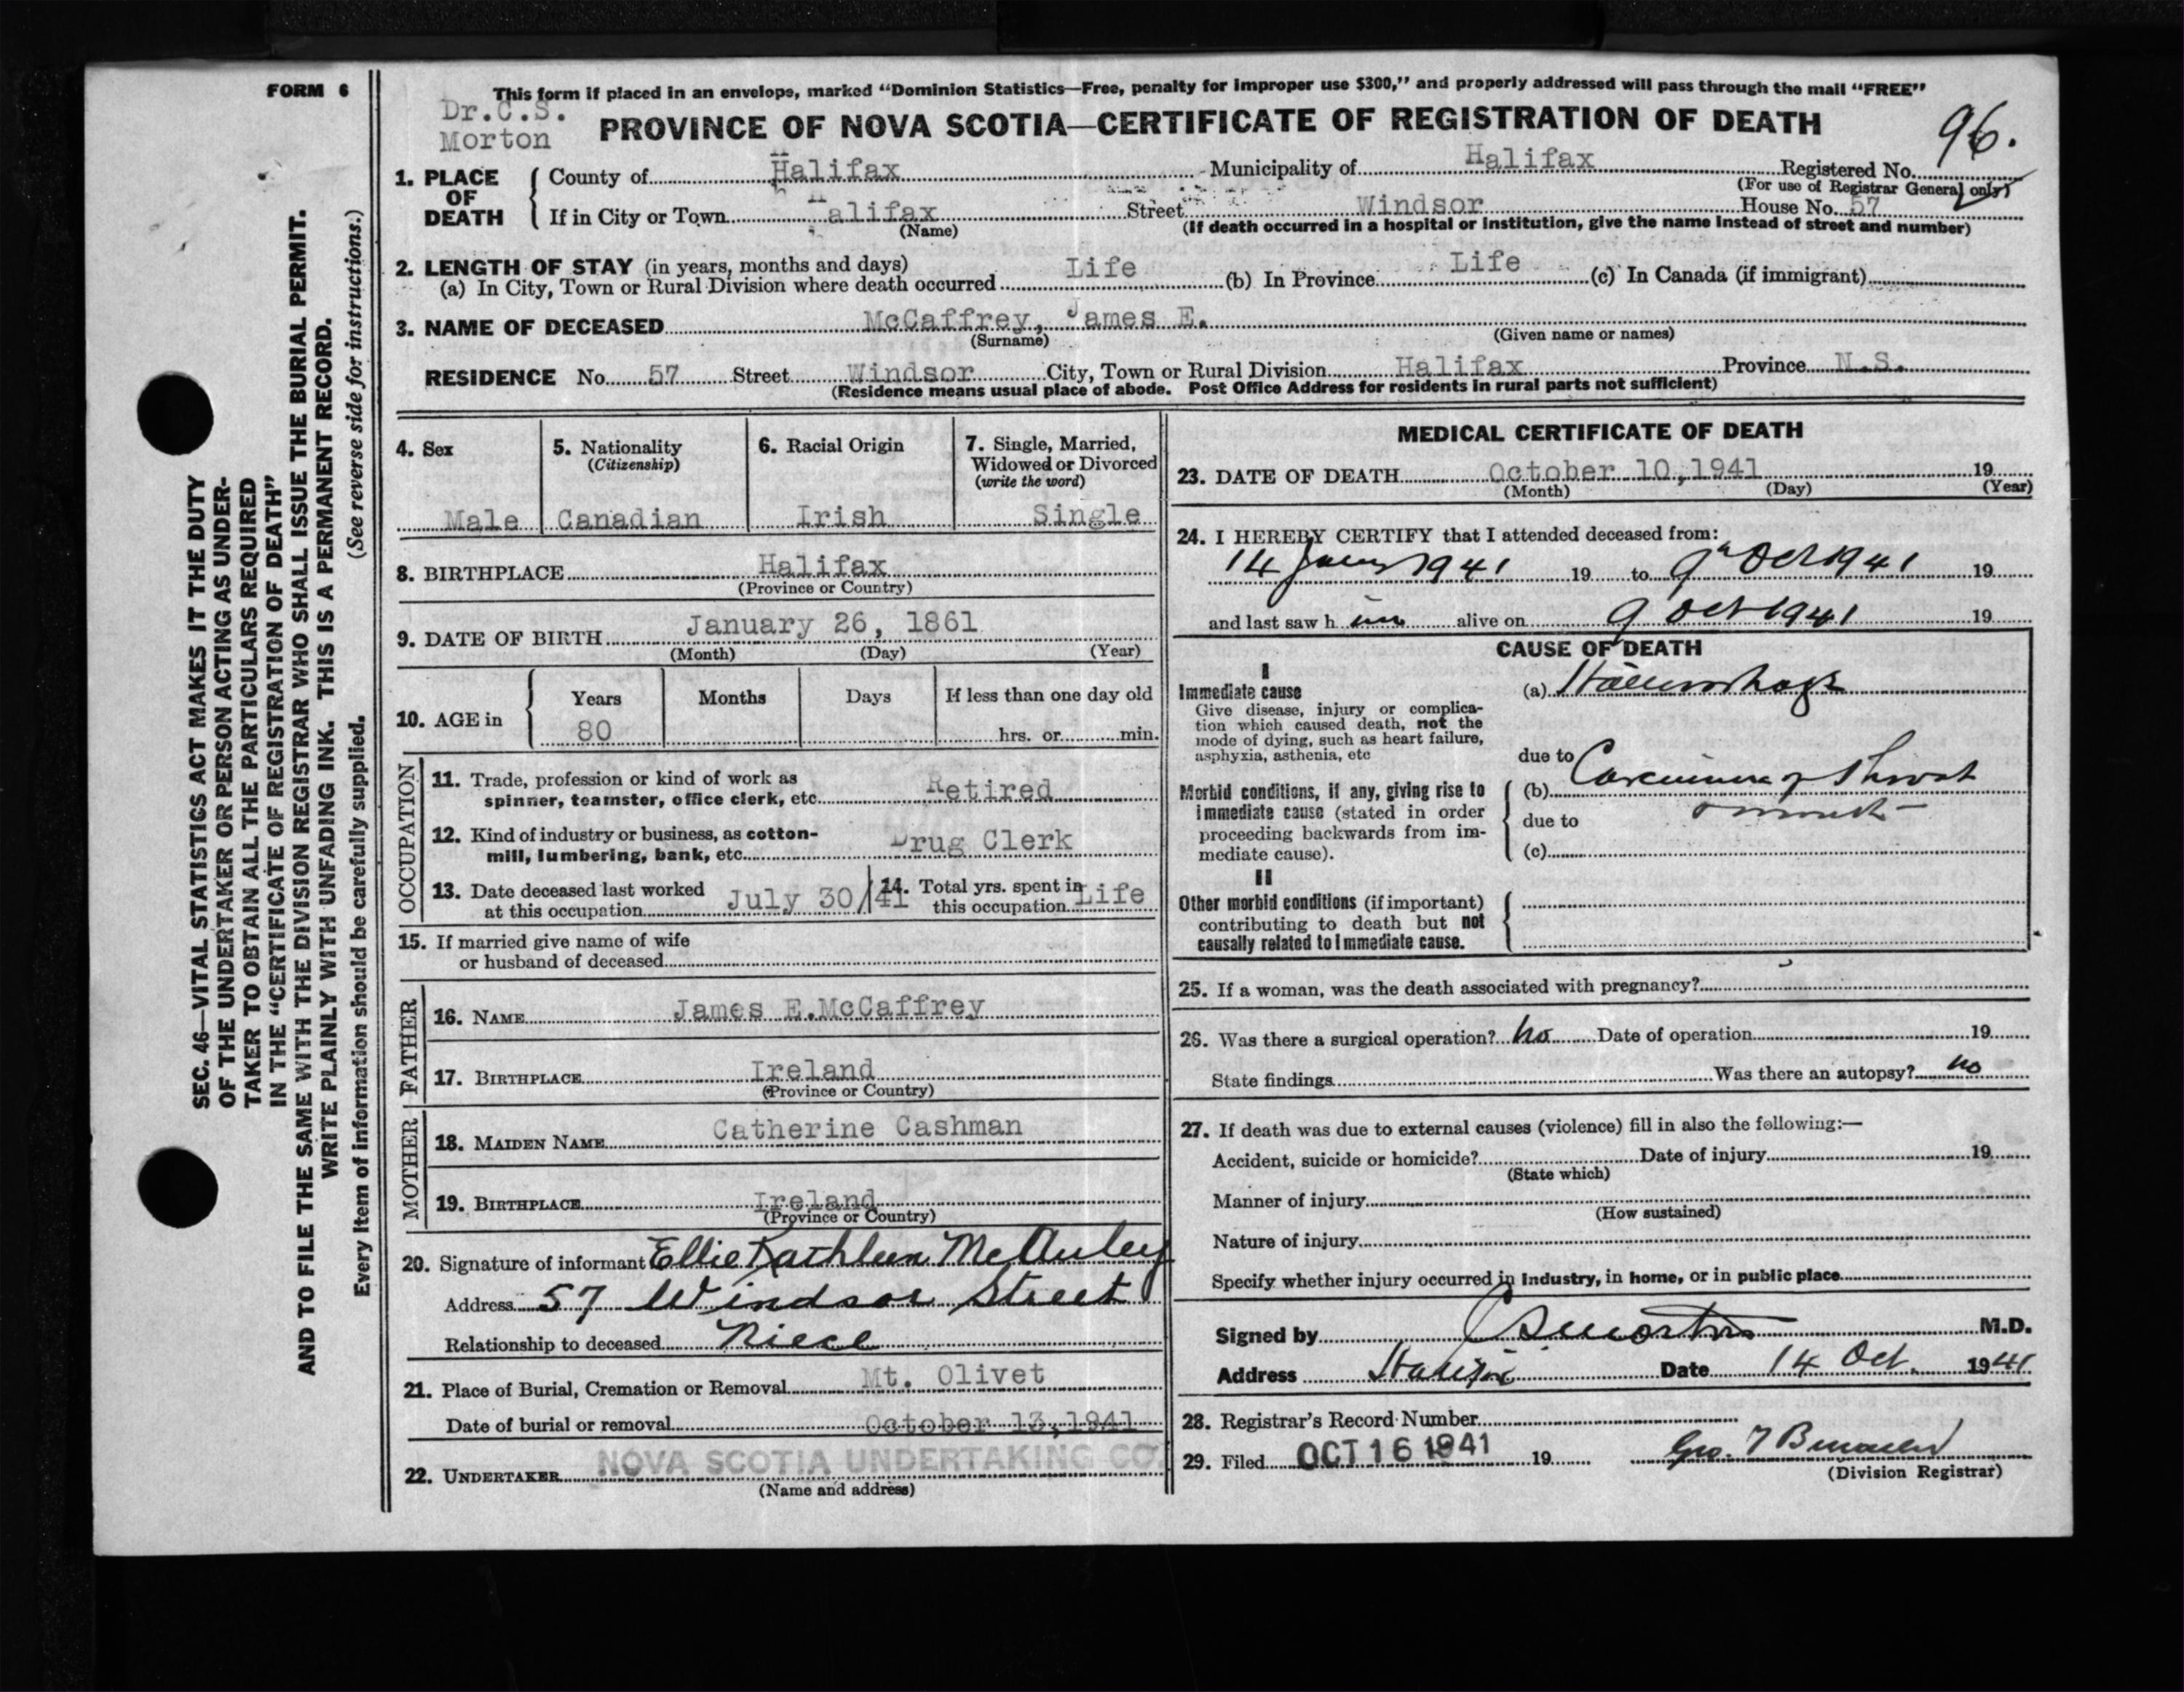 FORM 6
This form if placed in an envelope, marked "Dominion Statistics—Free, penalty for improper use $300," and properly addressed will pass through the mail "FREE"
Dr.C.S.
Morton
PROVINCE OF NOVA SCOTIA—CERTIFICATE OF REGISTRATION OF DEATH
96.
1. PLACE OF DEATH
County of Halifax Municipality of Halifax Registered No.
(For use of Registrar General only)
If in City or Town Halifax Street Windsor House No. 57
(Name) (If death occurred in a hospital or institution, give the name instead of street and number)
2. LENGTH OF STAY (in years, months and days)
(a) In City, Town or Rural Division where death occurred Life (b) In Province Life (c) In Canada (if immigrant)
3. NAME OF DECEASED McCaffrey, James E.
(Surname) (Given name or names)
RESIDENCE No. 57 Street Windsor City, Town or Rural Division Halifax Province N.S.
(Residence means usual place of abode. Post Office Address for residents in rural parts not sufficient)
4. Sex
Male
5. Nationality
(Citizenship)
Canadian
6. Racial Origin
Irish
7. Single, Married,
Widowed or Divorced
(write the word)
Single
8. BIRTHPLACE Halifax
(Province or Country)
9. DATE OF BIRTH January 26, 1861
(Month) (Day) (Year)
10. AGE in
Years Months Days If less than one day old
80 hrs. or min.
OCCUPATION
11. Trade, profession or kind of work as
spinner, teamster, office clerk, etc. Retired
12. Kind of industry or business, as cotton-
mill, lumbering, bank, etc. Drug Clerk
13. Date deceased last worked
at this occupation July 30/41
14. Total yrs. spent in
this occupation Life
15. If married give name of wife
or husband of deceased
FATHER
16. NAME James E.McCaffrey
17. BIRTHPLACE Ireland
(Province or Country)
MOTHER
18. MAIDEN NAME Catherine Cashman
19. BIRTHPLACE Ireland
(Province or Country)
20. Signature of informant Ellie Kathleen McAuley
Address 57 Windsor Street
Relationship to deceased Niece
21. Place of Burial, Cremation or Removal Mt. Olivet
Date of burial or removal October 13,1941
22. UNDERTAKER NOVA SCOTIA UNDERTAKING CO.
(Name and address)
MEDICAL CERTIFICATE OF DEATH
23. DATE OF DEATH October 10,1941 19
(Month) (Day) (Year)
24. I HEREBY CERTIFY that I attended deceased from:
14 Jany 1941 19 to 9th Oct 1941 19
and last saw h im alive on 9 Oct 1941 19
CAUSE OF DEATH
I
Immediate cause
Give disease, injury or complica-
tion which caused death, not the
mode of dying, such as heart failure,
asphyxia, asthenia, etc
(a) Haemorrhage
due to
Morbid conditions, if any, giving rise to
immediate cause (stated in order
proceeding backwards from im-
mediate cause).
(b) Carcinoma of Throat
due to
(c)
II
Other morbid conditions (if important)
contributing to death but not
causally related to immediate cause.
25. If a woman, was the death associated with pregnancy?
26. Was there a surgical operation? no Date of operation 19
State findings Was there an autopsy? no
27. If death was due to external causes (violence) fill in also the following:—
Accident, suicide or homicide? Date of injury 19
(State which)
Manner of injury
(How sustained)
Nature of injury
Specify whether injury occurred in industry, in home, or in public place
Signed by CS Morton M.D.
Address Halifax Date 14 Oct. 1941
28. Registrar's Record Number
29. Filed OCT 16 1941 19 Geo. 
(Division Registrar)
SEC. 46—VITAL STATISTICS ACT MAKES IT THE DUTY
OF THE UNDERTAKER OR PERSON ACTING AS UNDER-
TAKER TO OBTAIN ALL THE PARTICULARS REQUIRED
IN THE "CERTIFICATE OF REGISTRATION OF DEATH"
AND TO FILE THE SAME WITH THE DIVISION REGISTRAR WHO SHALL ISSUE THE BURIAL PERMIT.
WRITE PLAINLY WITH UNFADING INK. THIS IS A PERMANENT RECORD.
Every item of information should be carefully supplied. (See reverse side for instructions.)